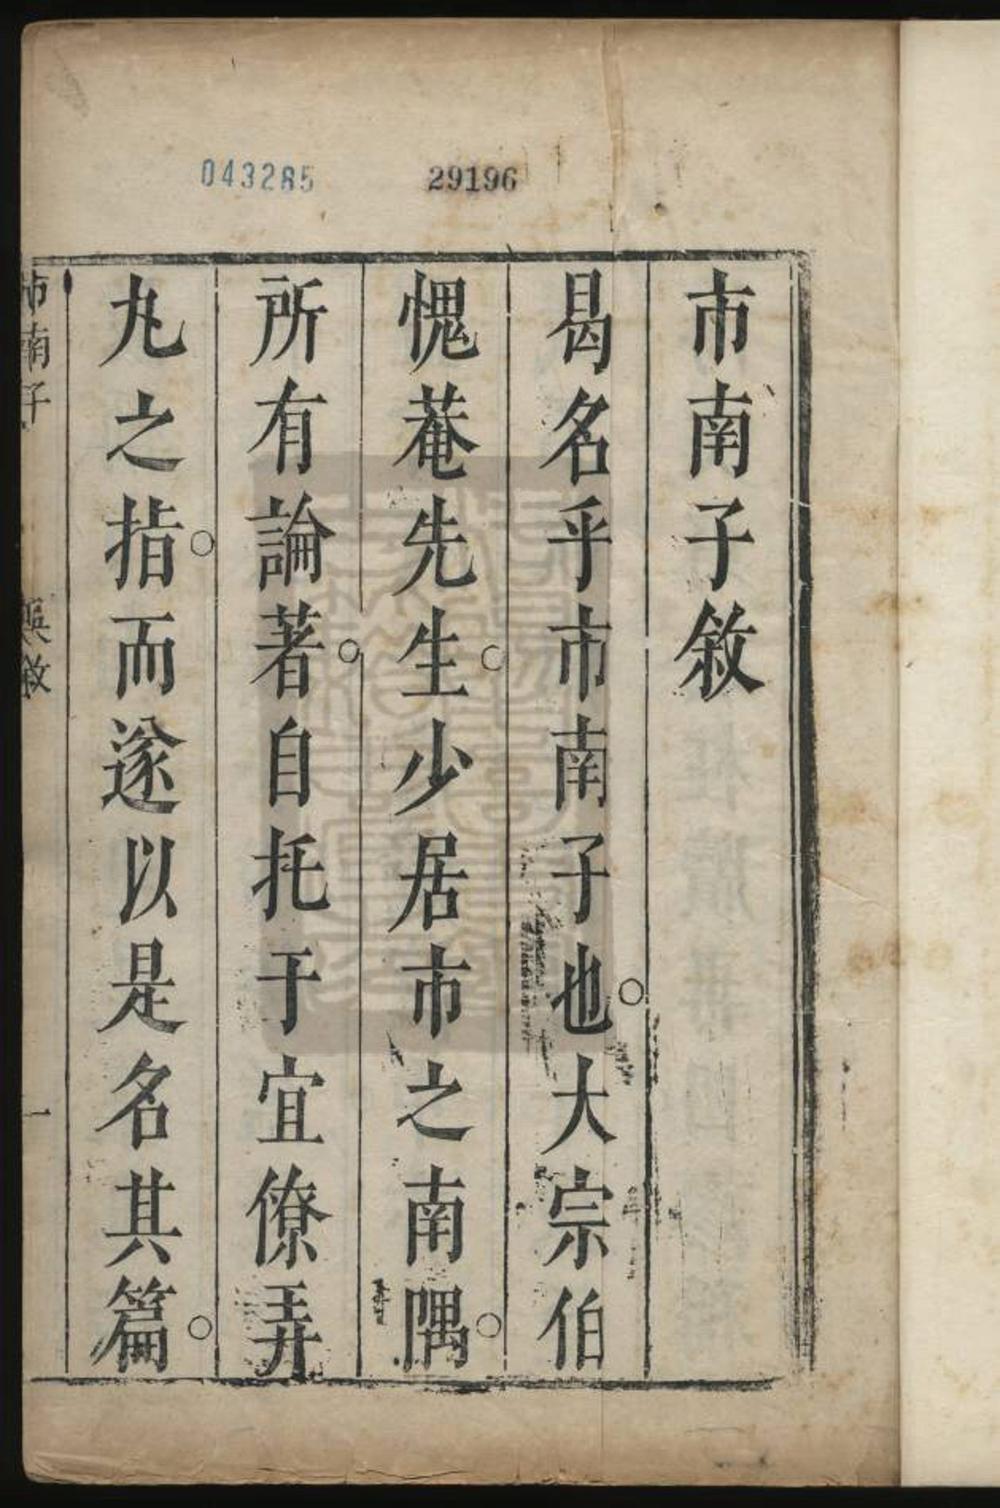 043285
29196
市南子敘
曷名乎市南子也○大宗伯
愧菴先生○少居市之南隅○
所有論著○自托于宜僚弄
丸之指○而遂以是名其篇○
市南子 吳敘 一